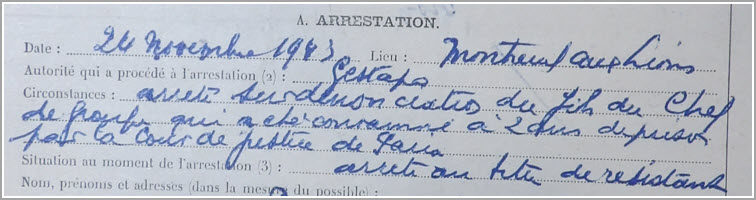 A. ARRESTATION.
Date : 24 Novembre 1943 Lieu : Montreuil aux Lions
Autorité qui a procédé à l'arrestation (2) : Gestapo
Circonstances : arrêté sur dénonciation du fils du Chef
de groupe qui a été condamné à 2 ans de prison
par la Cour de justice de Paris
Situation au moment de l'arrestation (3) : arrêté au titre de résistant
Nom, prénoms et adresses (dans la mesure du possible) :